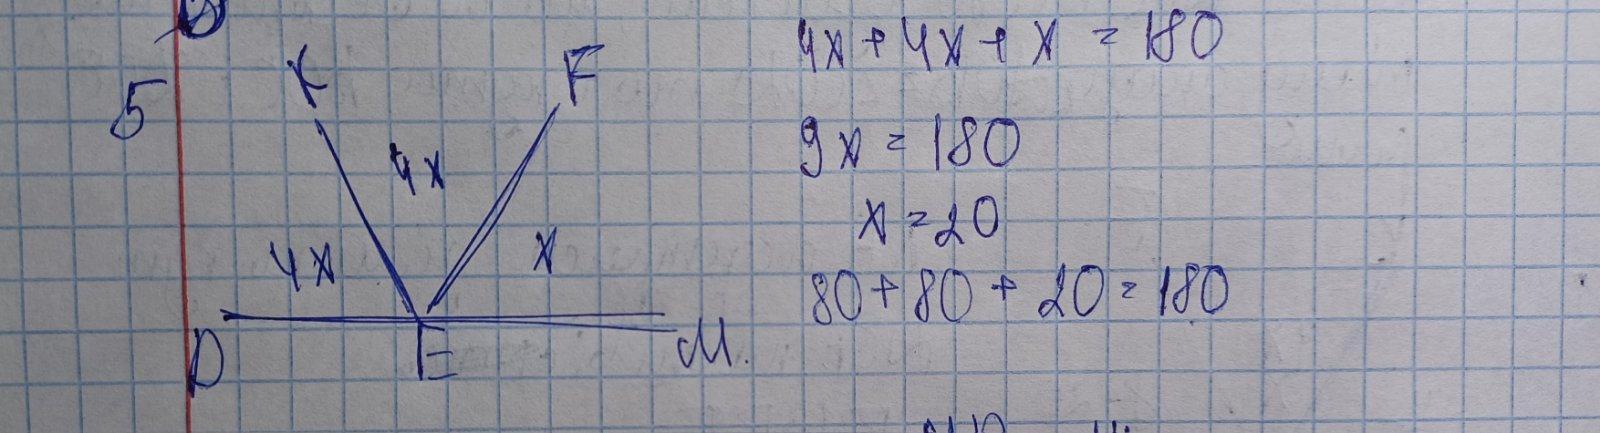 5
K
F
4x
4x
x
D
E
M.
4x + 4x + x = 180
9x = 180
x = 20
80 + 80 + 20 = 180